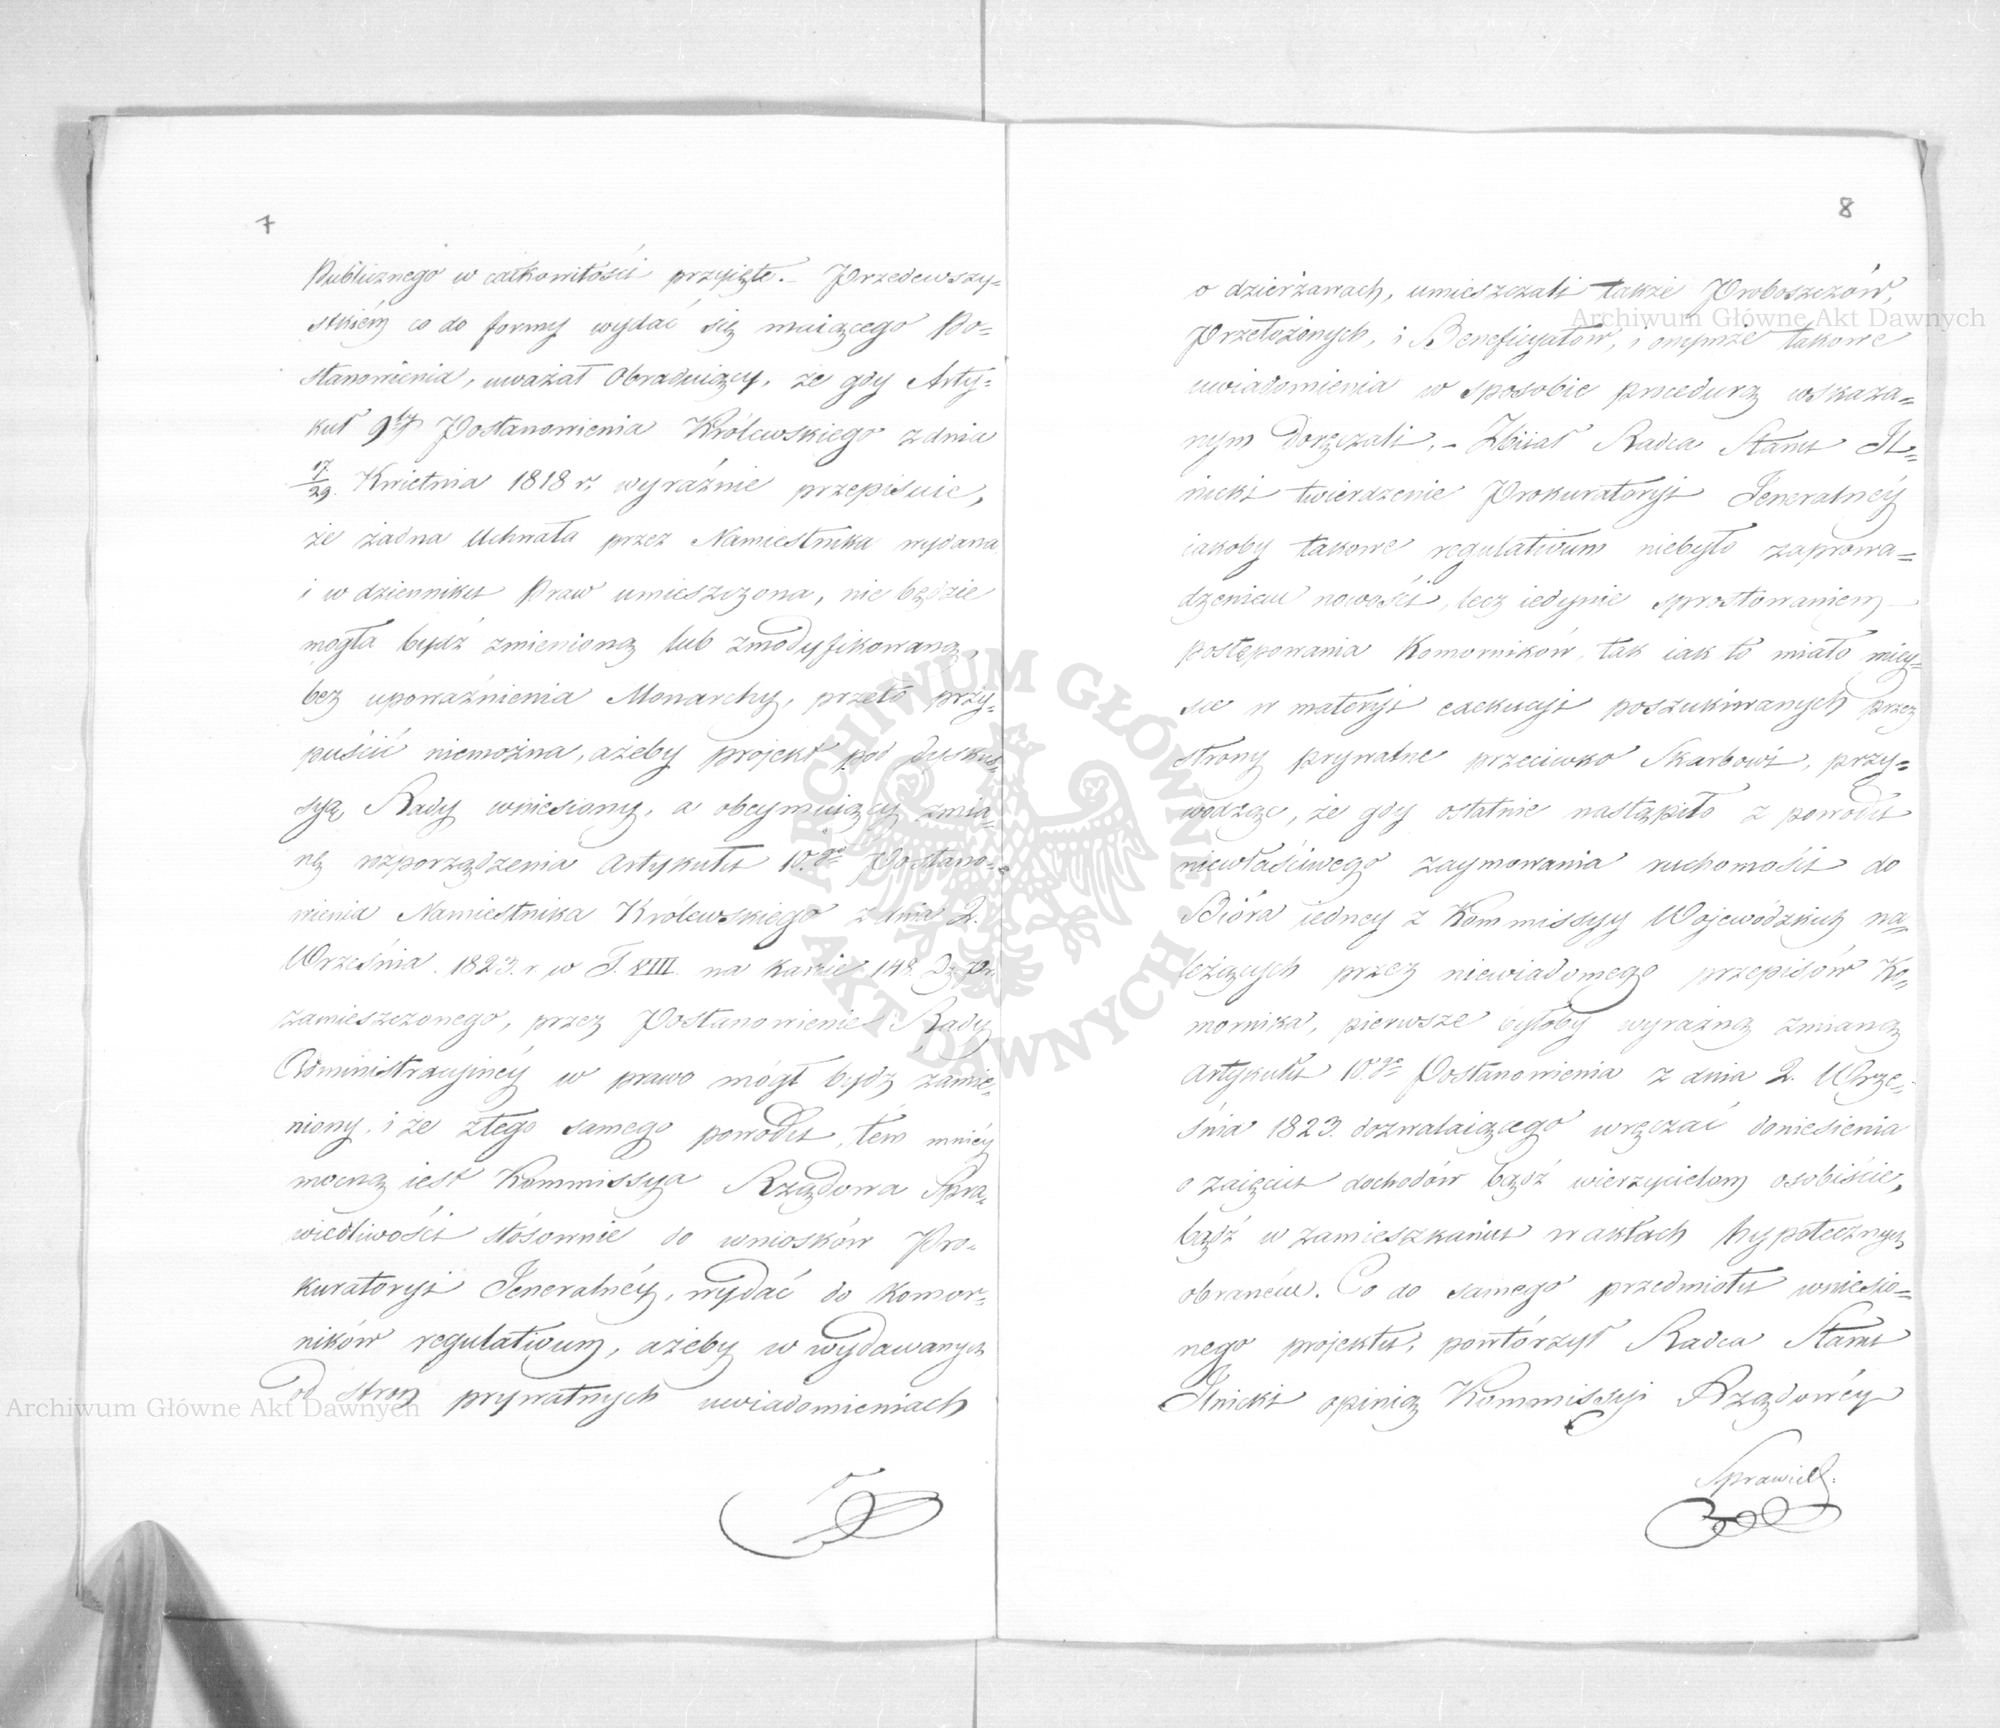 7
Publicznego w całkowitości przyięte. – Przedewszy=
stkiem co do formy wydać się maiącego Po=
stanowienia, uważał Obraduiący, że gdy Arty=
kuł 9ty Postanowienia Królewskiego z dnia
17/29 Kwietnia 1818 r. wyraźnie przepisuie,
że żadna Uchwała przez Namiestnika wydana
i w dzienniku Praw umieszczona, nie będzie
mogła bydź zmienioną lub zmodyfikowaną,
bez upoważnienia Monarchy, przeto przy=
puścić niemożna, ażeby projekt pod dyskus=
syą Rady wniesiony, a obeymuiący zmia=
nę rozporządzenia Artykułu 10.go Postano=
wienia Namiestnika Królewskiego z dnia 2.
Września 1823. r. w T. VIII. na karcie 148. Dz. Pr.
zamieszczonego, przez Postanowienie Rady
Administracyinéy w prawo mógł bydź zamie=
niony, i że ztego samego powodu, tém mniéy
mocną iest Kommissya Rządowa Spra=
wiedliwości stósownie do wniosków Pro=
kuratoryi Jeneralnéy, wydać do Komor=
ników regulativum, ażeby w wydawanych
od stron prywatnych uwiadomieniach
8
o dzierżawach, umieszczali także Proboszczów,
Przełożonych, i Beneficyatów, i onymże takowe
uwiadomienia w sposobie procedurą wskaza=
nym doręczali. – Zbiiał Radca Stanu Il=
nicki twierdzenie Prokuratoryi Jeneralnéy
iakoby takowe regulativum niebyło zaprowa=
dzeniem nowości, lecz iedynie sprostowaniem
postępowania Komorników, tak iak to miało miey=
sce w materyi exekucyi poszukiwanych przez
strony prywatne przeciwko Skarbowi, przy=
wodząc, że gdy ostatnie nastąpiło z powodu
niewłaściwego zaymowania ruchomości do
Bióra iedney z Kommissyy Woiewódzkich na=
leżących przez niewiadomego przepisów Ko=
mornika, pierwsze byłoby wyraźną zmianą
Artykułu 10.go Postanowienia z dnia 2. Wrze=
śnia 1823. dozwalaiącego wręczać doniesienia
o zaięciu dochodów bądź wierzycielom osobiście,
bądź w zamieszkaniu w aktach hypotecznych
obraném. Co do samego przedmiotu wniesio=
nego projektu, powtórzył Radca Stanu
Ilnicki opinią Kommissyi Rządowéy
Sprawiedl:
Archiwum Główne Akt Dawnych
Archiwum Główne Akt Dawnych
ARCHIWUM GŁÓWNE AKT DAWNYCH